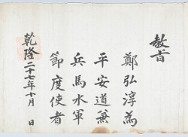 教旨
鄭弘淳爲
平安道兼
兵馬水軍
節度使者
乾隆二十七年十月 日